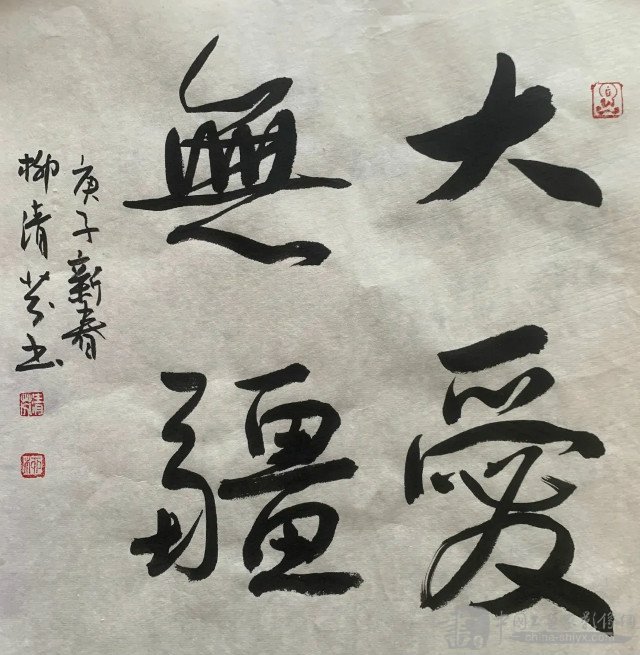 大愛
無疆
庚子新春
柳清芬书
china-shiyx.com